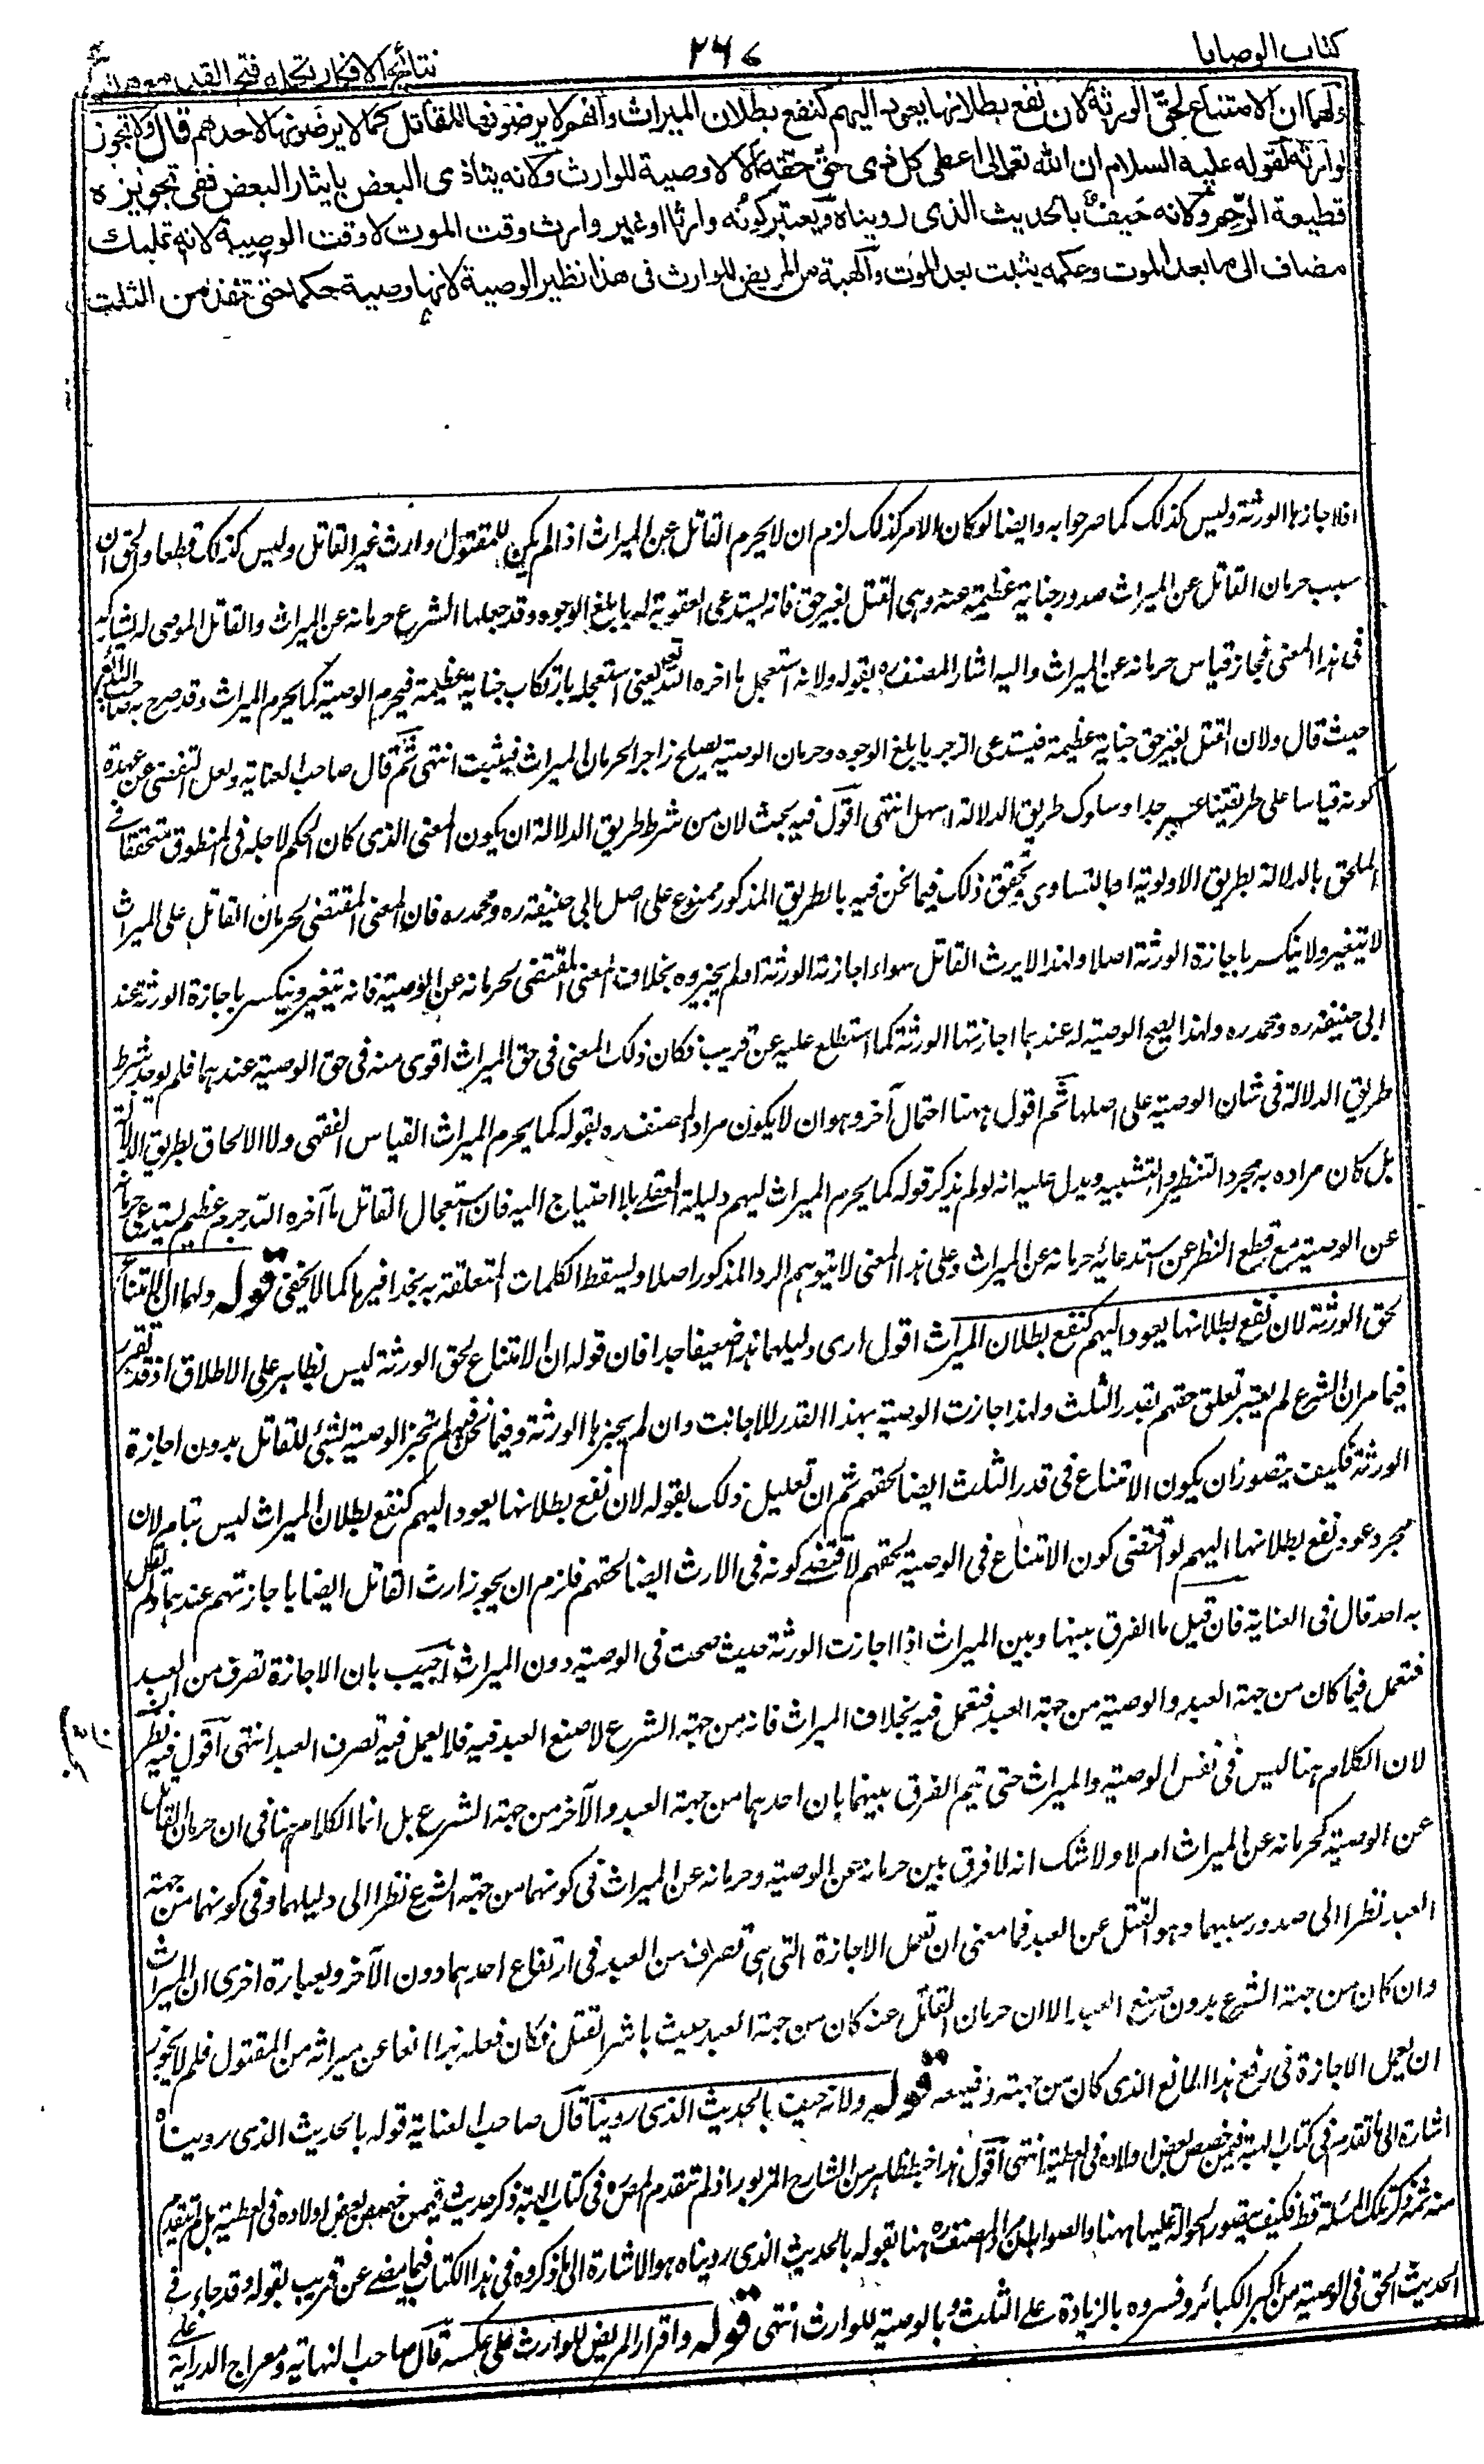 كتاب الوصايا
٢٤٧
نتائج الافكار تكملة فتح القدير مع هداية
ولهما ان الامتناع لحق الورثة لان نفع بطلانها يعود اليهم كنفع بطلان الميراث ولانهم لا يرضونها للقاتل كما لا يرضونها لاحدهم قال ولا تجوز
لوارثه لقوله عليه السلام ان الله تعالى اعطى كل ذى حق حقه الا لا وصية للوارث ولانه يتاذى البعض بايثار البعض ففى تجويزه
قطيعة الرحم ولانه حيف بالحديث الذى رويناه ويعتبر كونه وارثا او غير وارث وقت الموت لا وقت الوصية لانه تمليك
مضاف الى ما بعد الموت وحكمه يثبت بعد الموت والهبة من المريض للوارث فى هذا نظير الوصية لانها وصية حكما حتى تنفذ من الثلث
اذا اجازها الورثة وليس كذلك كما صرحوا به وايضا لو كان الامر كذلك لزم ان لا يحرم القاتل عن الميراث اذا لم يكن للمقتول وارث غير القاتل وليس كذلك قطعا والحق ان
سبب حرمان القاتل عن الميراث صدور جناية عظيمة عنه وهى القتل بغير حق فانه يستدعى العقوبة له بابلغ الوجوه وقد جعلها الشرع حرمانه عن الميراث والقاتل الموصى له يشاركه
فى هذا المعنى فجاز قياس حرمانه عن الميراث واليه اشار المصنف ره بقوله ولانه استعجل ما اخره الله تعالى يعنى استعجله بارتكاب جناية عظيمة فيحرم الوصية كما يحرم الميراث وقد صرح به صاحب الكافى
حيث قال ولان القتل بغير حق جناية عظيمة فيستدعى الزجر بابلغ الوجوه وحرمان الوصية يصلح زاجرا لحرمان الميراث فيثبت انتهى ثم قال صاحب العناية ولعل التفصى عن عهدة
كونه قياسا على طريقتنا عسير جدا وسلوك طريق الدلالة اسهل انتهى اقول فيه بحث لان من شرط طريق الدلالة ان يكون المعنى الذى كان الحكم لاجله فى المنطوق متحققا فى
الملحق بالدلالة بطريق الاولوية او بالتساوى وتحقق ذلك فيما نحن فيه بالطريق المذكور ممنوع على اصل ابى حنيفة ره ومحمد ره فان المعنى المقتضى لحرمان القاتل على الميراث
لا يتغير ولا ينكسر باجازة الورثة اصلا ولهذا لا يرث القاتل سواء اجازته الورثة او لم يجيزوه بخلاف المعنى المقتضى لحرمانه عن الوصية فانه يتغير وينكسر باجازة الورثة عند
ابى حنيفة ره ومحمد ره ولهذا تصح الوصية له عندهما اجازتها الورثة كما استطلع عليه عن قريب فكان ذلك المعنى فى حق الميراث اقوى منه فى حق الوصية عندهما فلم يوجد شرط
طريق الدلالة فى شان الوصية على اصلهما ثم اقول ههنا احتمال آخر وهو ان لا يكون مراد المصنف ره بقوله كما يحرم الميراث القياس الفقهى ولا الالحاق بطريق الدلالة
بل كان مراده به مجرد التنظير والتشبيه ويدل عليه انه لو لم يذكر قوله كما يحرم الميراث ليتم دليله العقلى بلا احتياج اليه فان استعجال القاتل ما آخره الله جرم عظيم يستدعى حرمانه
عن الوصية مع قطع النظر عن استدعائه حرمانه عن الميراث وعلى هذا المعنى لا يتوهم الرد المذكور اصلا ويسقط الكلمات المتعلقة به بحذافيرها كما لا يخفى قوله ولهما ان الامتناع
لحق الورثة لان نفع بطلانها يعود اليهم كنفع بطلان الميراث اقول ارى دليلهما هذا ضعيفا جدا فان قوله ان الامتناع لحق الورثة ليس بظاهر على الاطلاق اذ قد تقرر
فيما مر ان الشرع لم يعتبر تعلق حقهم بقدر الثلث ولهذا جازت الوصية بهذا القدر للاجانب وان لم يجيزها الورثة وفيما نحن فيه لم تجز الوصية لشئ للقاتل بدون اجازة
الورثة فكيف يتصور ان يكون الامتناع فى قدر الثلث ايضا لحقهم ثم ان تعليل ذلك بقوله لان نفع بطلانها يعود اليهم كنفع بطلان الميراث ليس بتام لان
مجرد عود نفع بطلانها اليهم لو اقتضى كون الامتناع فى الوصية لحقهم لاقتضى كونه فى الارث ايضا لحقهم فلزم ان يجوز ارث القاتل ايضا باجازتهم عندهما ولم يقل
به احد قال فى العناية فان قيل ما الفرق بينها وبين الميراث اذا اجازت الورثة حيث صحت فى الوصية دون الميراث اجيب بان الاجازة تصرف من العبد
فتعمل فيما كان من جهة العبد والوصية من جهة العبد فتعمل فيه بخلاف الميراث فانه من جهة الشرع لا صنع العبد فيه فلا يعمل فيه تصرف العبد انتهى اقول فيه نظر
لان الكلام هنا ليس فى نفس الوصية والميراث حتى يتم الفرق بينهما بان احدهما من جهة العبد والآخر من جهة الشرع بل انما الكلام ههنا فى ان حرمان القاتل
عن الوصية كحرمانه عن الميراث ام لا ولا شك انه لا فرق بين حرمانه عن الوصية وحرمانه عن الميراث فى كونهما من جهة الشرع نظرا الى دليلهما وفى كونهما من جهة
العبد نظرا الى صدور سببهما وهو القتل عن العبد فما معنى ان تعمل الاجازة التى هى تصرف من العبد فى ارتفاع احدهما دون الآخر وبعبارة اخرى ان الميراث
وان كان من جهة الشرع بدون صنع العبد الا ان حرمان القاتل عنه كان من جهة العبد حيث باشر القتل فكان فعله هذا مانعا عن ميراثه من المقتول فلم لا يجوز
ان تعمل الاجازة فى رفع هذا المانع الذى كان من جهته فرفعه قوله ولانه حيف بالحديث الذى روينا قال صاحب العناية قوله بالحديث الذى رويناه
اشارة الى ما تقدم فى كتاب الهبة فيمن خصص بعض اولاده فى العطية انتهى اقول هذا خبط ظاهر من الشارح المزبور اذ لم يتقدم من المصنف فى كتاب الهبة ذكر حديث فيمن خصص بعض اولاده فى العطية بل لم يتقدم
منه ثمه ذكر تلك المسئلة قط فكيف يتصور الحوالة عليها ههنا والصواب ان مراد المصنف ره هنا بقوله بالحديث الذى رويناه هو الاشارة الى ما ذكروه فى هذا الكتاب فيما مضى عن قريب بقوله وقد جاء فى
الحديث الحيف فى الوصية من اكبر الكبائر وفسروه بالزيادة على الثلث وبالوصية للوارث انتهى قوله واقرار المريض للوارث على عكسه قال صاحب النهاية ومعراج الدراية على